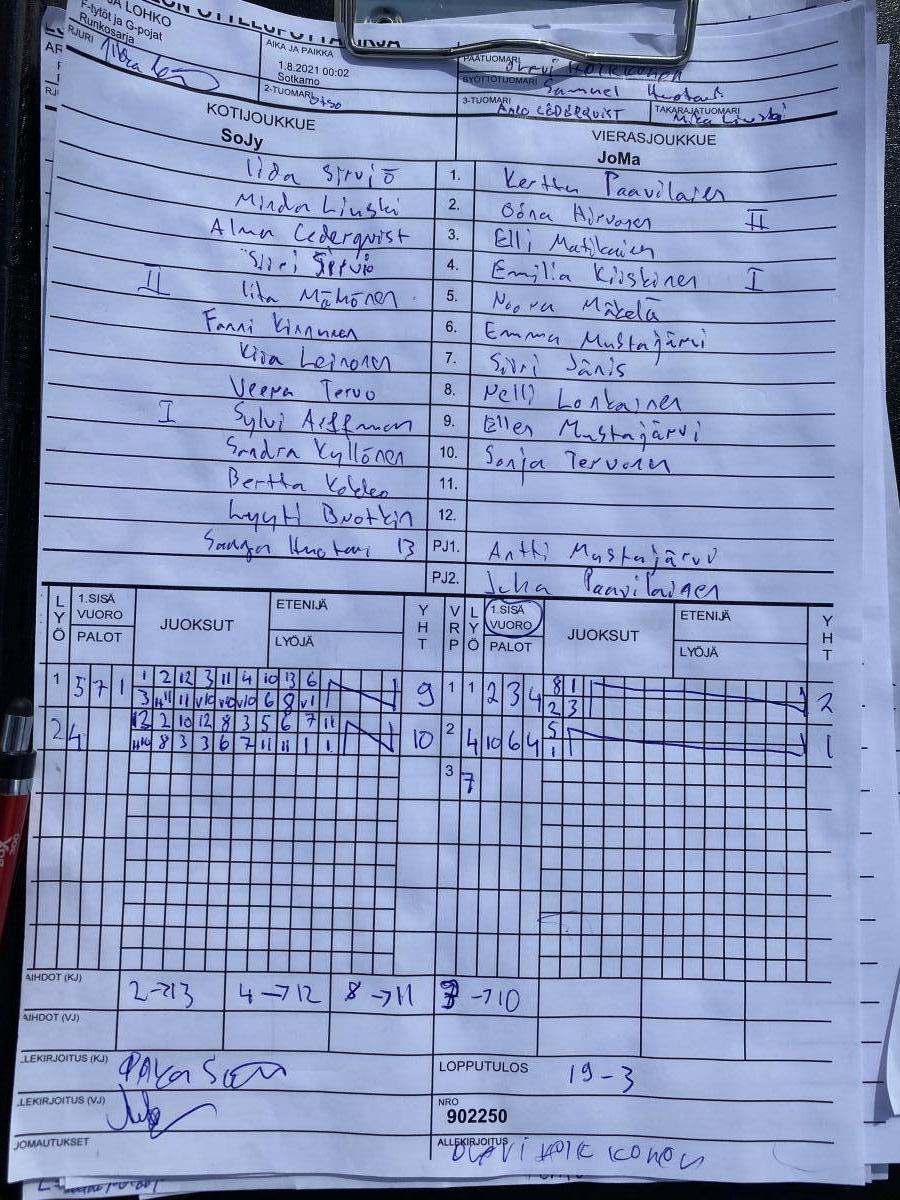 JA LOHKO
F-tytöt ja G-pojat
Runkosarja
AIKA JA PAIKKA
1.8.2021 00:02
Sotkamo
2-TUOMARI
PÄÄTUOMARI
SYÖTTÖTUOMARI Samuel Huotari
3-TUOMARI
TAKARAJATUOMARI
KOTIJOUKKUE
SoJy
VIERASJOUKKUE
JoMa
Iida Sirviö 1. Kerttu Paavilainen
Minda Linski 2. Oona Hirvonen II
Alma Cederqvist 3. Elli Matikainen
Siiri Sirviö 4. Emilia Kiiskinen I
II Iita Mähönen 5. Noora Mäkelä
Fanni Kinnunen 6. Emma Mustajärvi
Kiia Leinonen 7. Siiri Jänis
Veera Tervo 8. Nelli Lonkainen
I Sylvi 9. Ellen Mustajärvi
Sandra Kyllönen 10. Sonja Tervonen
Bertta 11.
Lyyti 12.
Huotari 13 PJ1. Antti Mustajärvi
PJ2. Juha Paavilainen
LYÖ 1.SISÄ VUORO PALOT JUOKSUT ETENIJÄ LYÖJÄ YHT VRP LYÖ 1.SISÄ VUORO PALOT JUOKSUT ETENIJÄ LYÖJÄ YHT
1 2 12 3 11 4 10 13 6 8 1
1 5 7 1 9 1 1 2 3 4 2
3 H11 11 V10 V10 V10 6 8 V1 2 3
13 2 10 12 8 3 5 6 7 11 5
2 4 10 2 4 10 6 4 1
H10 8 3 3 6 7 11 11 1 1 1
3 7
AIHDOT (KJ) 2→13 4→12 8→11 →10
AIHDOT (VJ)
LEKIRJOITUS (KJ)
LOPPUTULOS 19-3
LEKIRJOITUS (VJ)
NRO
902250
JOMAUTUKSET
ALLEKIRJOITUS Olavi Kolkkonen